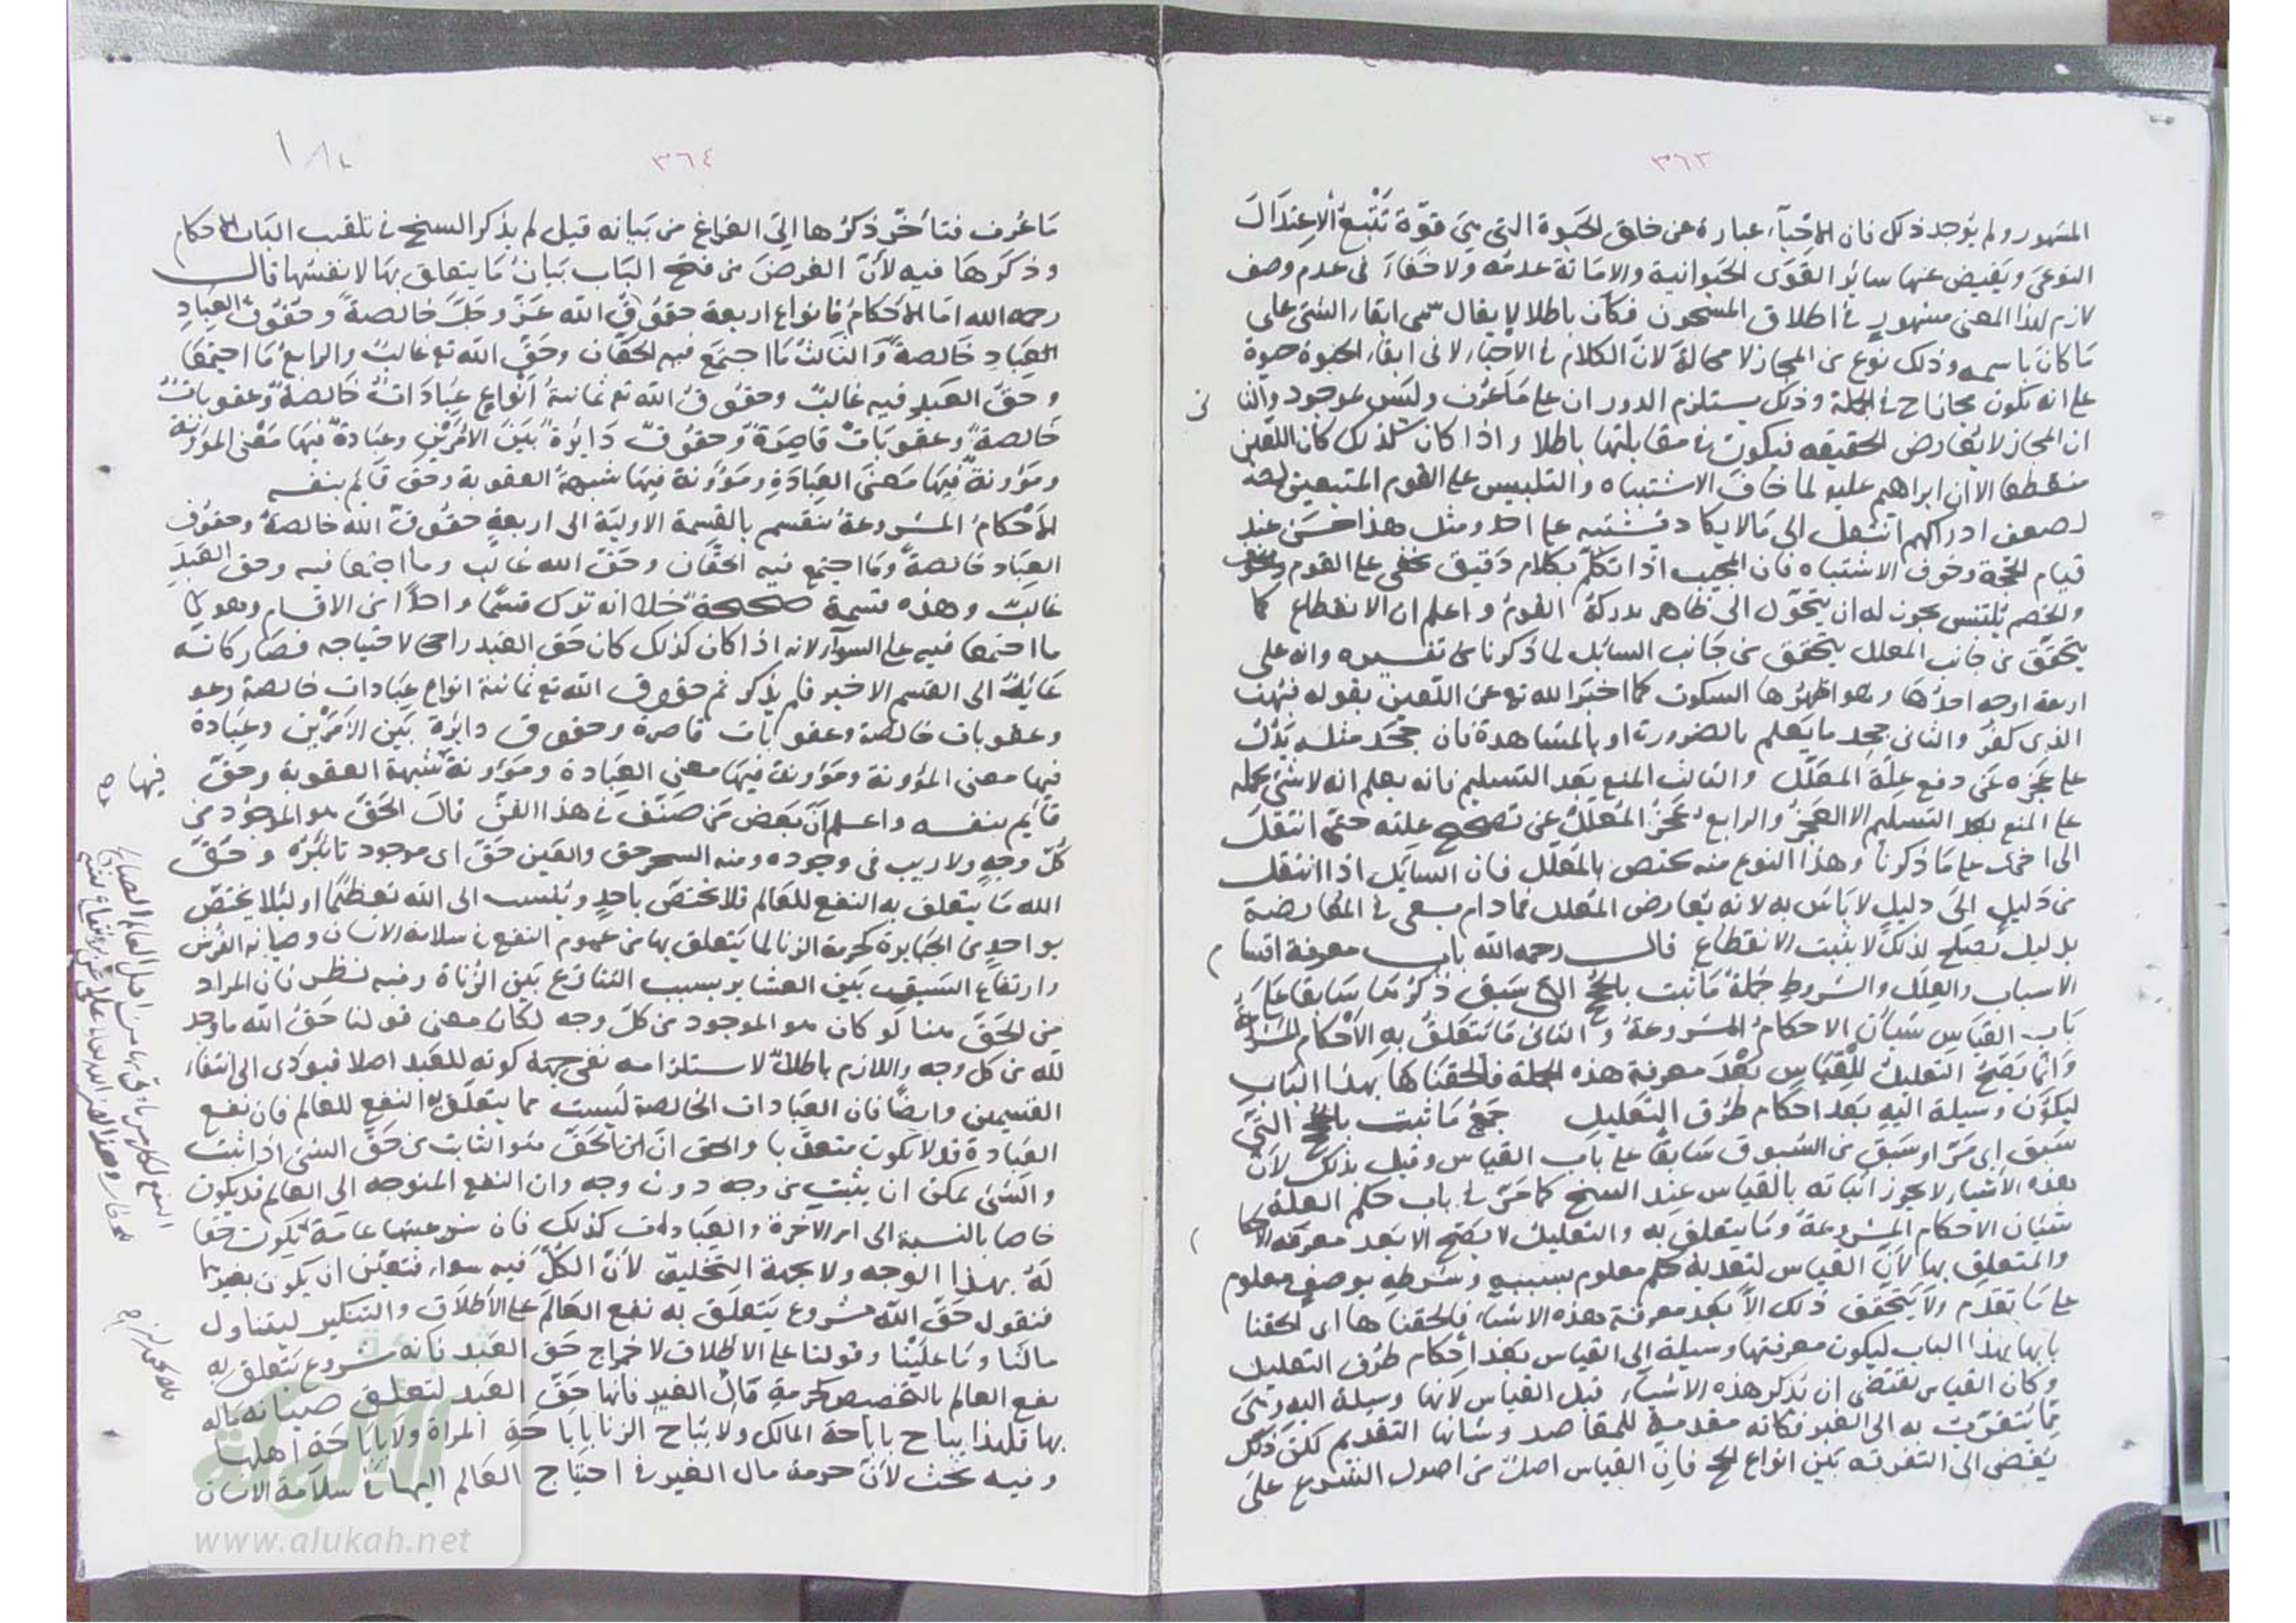 ٣٦٣
المشهور ولم يوجد ذلك فان الاحياء عبارة عن خلق الحيوة التي هي قوة تتبع الاعتدال
النوعي ويفيض عنها سائر القوى الحيوانية والاماتة عدمه ولا خفاء في عدم وصف
لازم لهذا المعنى مشهور في اطلاق المسجون فكان باطلا لا يقال سمى ابقاء الشئ على
ما كان باسمه وذلك نوع من المجاز لا محالة لان الكلام في الاحياء لا في ابقاء الحيوة حيوة
على انه يكون مجازا في الجملة وذلك يستلزم الدوران على ما عرف وليس بموجود والثاني
ان المجاز لا يعارض الحقيقه فيكون في مقابلتها باطلا واذا كان كذلك كان اللعين
منقطعا الا ان ابراهيم عليه لما خاف الاشتباه والتلبيس على القوم المتبعين لهم
لضعف ادراكهم انتقل الى ما لا يكاد يشتبه على احد ومثل هذا حسن عند
قيام الحجة وخوف الاشتباه فان المجيب اذا تكلم بكلام دقيق يخفى على القوم
والخصم يلتبس يجوز له ان يتحول الى ظاهر يدركه القوم واعلم ان الانقطاع كما
يتحقق من جانب المعلل يتحقق من جانب السائل لما ذكرنا من تفسيره وانه على
اربعة اوجه احدها وهو اظهرها السكوت كما اخبر الله تع عن اللعين بقوله فبهت
الذي كفر والثاني جحد ما يعلم بالضرورة او بالمشاهدة فان جحد مثله يدل
على عجزه عن دفع علة المعلل والثالث المنع بعد التسليم فانه يعلم انه لا شئ يحمله
على المنع بعد التسليم الا العجز والرابع عجز المعلل عن تصحيح علته حتى انتقل
الى اخرى على ما ذكرنا وهذا النوع منه يختص بالمعلل فان السائل اذا انتقل
من دليل الى دليل لا باس به لانه يعارض المعلل فما دام يسعى في المعارضة
بدليل يصلح لذلك لا يثبت الانقطاع قال رحمه الله باب معرفة اقسام
الاسباب والعلل والشروط جملة ما ثبت بالحجج التي سبق ذكرها سابقا على
باب القياس شيئان الاحكام المشروعة والثاني ما يتعلق به الاحكام المشروعة
وانما يصح التعليل للقياس بعد معرفة هذه الجملة فالحقناها بهذا الباب
ليكون وسيلة اليه بعد احكام طرق التعليل جميع ما ثبت بالحجج التي
سبق اي مر او سبق من السبوق سابقا على باب القياس وقيل بذلك لان
هذه الاشياء لا يجوز اثباته بالقياس عند الشيخ كما مر في باب حكم العلة
شيئان الاحكام المشروعة وما يتعلق به والتعليل لا يصح الا بعد معرفة الاحكام
والمتعلق بها لان القياس لتعدية حكم معلوم بسببه وشرطه بوصف معلوم
على ما تقدم ولا يتحقق ذلك الا بعد معرفة هذه الاشياء فالحقناها اى الحقنا
بابها بهذا الباب ليكون معرفتها وسيلة الى القياس بعد احكام طرق التعليل
وكان القياس يقتضى ان يذكر هذه الاشياء قبل القياس لانها وسيلة اليه وهى
ما يتقرب به الى الغير فكانه مقدمة للمقاصد وشانها التقديم لكن ذلك
يفضى الى التفرقه بين انواع الحجج فان القياس اصل من اصول الشرع على
٣٦٤
ما عرف فتأخر ذكرها الى الفراغ من بيانه قيل لم يذكر الشيخ في تلقيب الباب الاحكام
وذكرها فيه لان الغرض من فتح الباب بيان ما يتعلق بها لا نفسها قال
رحمه الله اما الاحكام فانواع اربعة حقوق الله عز وجل خالصة وحقوق العباد
العباد خالصة والثالث ما اجتمع فيه الحقان وحق الله تع غالب والرابع ما اجتمعا
وحق العبد فيه غالب وحقوق الله تع ثمانية انواع عبادات خالصة وعقوبات
خالصة وعقوبات قاصرة وحقوق دائرة بين الامرين وعبادة فيها معنى المؤنة
ومؤونة فيها معنى العبادة ومؤونة فيها شبهة العقوبة وحق قائم بنفسه
الاحكام المشروعة تنقسم بالقسمة الاولية الى اربعة حقوق الله خالصة وحقوق
العباد خالصة وما اجتمع فيه الحقان وحق الله غالب وما اجتمعا فيه وحق العبد
غالب وهذه قسمة صحيحة خلا انه ترك قسما واحدا من الاقسام وهو
ما اجتمعا فيه على السواء لانه اذا كان كذلك كان حق العبد راجحا لاحتياجه فصار كانه
عائد الى القسم الاخير فلم يذكر ثم حقوق الله تع ثمانية انواع عبادات خالصة
وعقوبات خالصة وعقوبات قاصرة وحقوق دايرة بين الامرين وعبادة
فيها معنى المؤونة ومؤونة فيها معنى العبادة ومؤونة شبهة العقوبة وحق
فيها صح
قايم بنفسه واعلم ان بعض من صنف في هذا الفن قال الحق هو الموجود من
كل وجه ولا ريب في وجوده ومنه السحر حق والعين حق اى موجود تاثيره وحق
الله ما يتعلق به النفع للعالم فلا يختص باحد وينسب الى الله تعظيما او لئلا يختص
به واحد من الجبابرة كحرمة الزنا لما يتعلق بها من عموم النفع في سلامة الانسان وصيانة الفرش
وارتفاع السيف بين العشاير بسبب التنازع بين الزناة وفيه نظر فان المراد
من الحق هنا لو كان هو الموجود من كل وجه لكان معنى قولنا حق الله ما وجد
لله من كل وجه واللازم باطل لاستلزامه نفى جهة كونه للعبد اصلا فيؤدى الى انتفاء
القسمين وايضا فان العبادات الخالصة ليست مما يتعلق به النفع للعالم فان نفع
العبادة قد لا يكون متعديا والحق ان الحق هو الثابت من حق الشئ اذا ثبت
والشئ يمكن ان يثبت من وجه دون وجه وان النفع المتوجه الى العالم قد يكون
خاصا بالنسبة الى امر الآخرة والعبادات كذلك فان شرعيتها عامة يكون حقا
له بهذا الوجه ولا بجهة التخليق لان الكل فيه سواء فتعين ان يكون بغيرهما
فنقول حق الله مشروع يتعلق به نفع العالم على الاطلاق والتنكير ليتناول
مالنا وما علينا وقولنا على الاطلاق لاخراج حق العبد فانه مشروع يتعلق به
نفع العالم بالتخصيص كحرمة مال الغير فانها حق العبد لتعلق صيانة ماله
بها فلهذا يباح باباحة المالك ولا يباح الزنا باباحة المراة ولا باباحة اهلها
وفيه بحث لان حرمة مال الغير في احتياج العالم اليها في سلامة الانسان
www.alukah.net